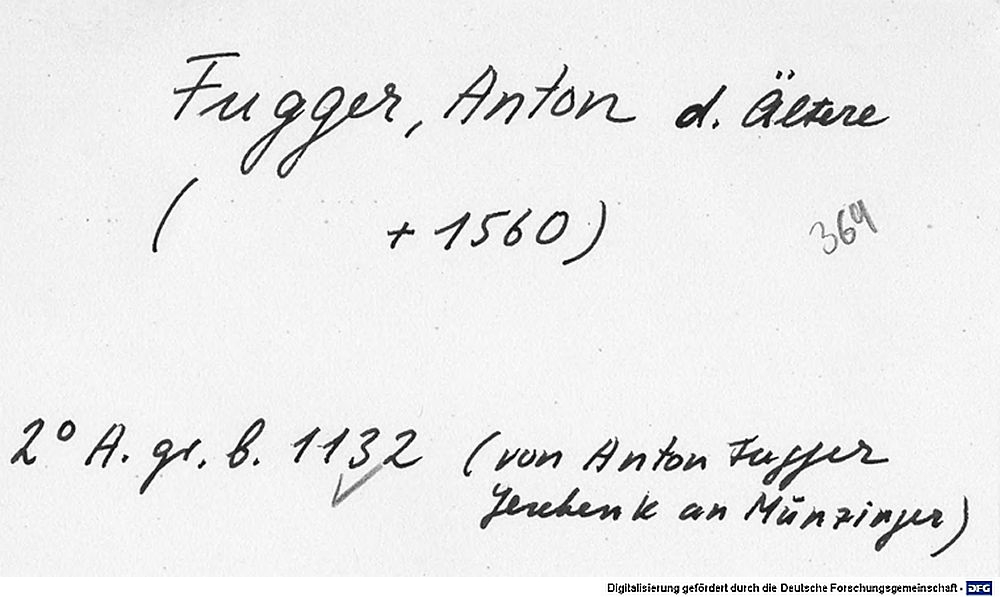 Fugger, Anton d. Ältere
( + 1560)
369
2° A. gr. b. 1132 (von Anton Fugger
Geschenk an Münzinger)
Digitalisierung gefördert durch die Deutsche Forschungsgemeinschaft - DFG